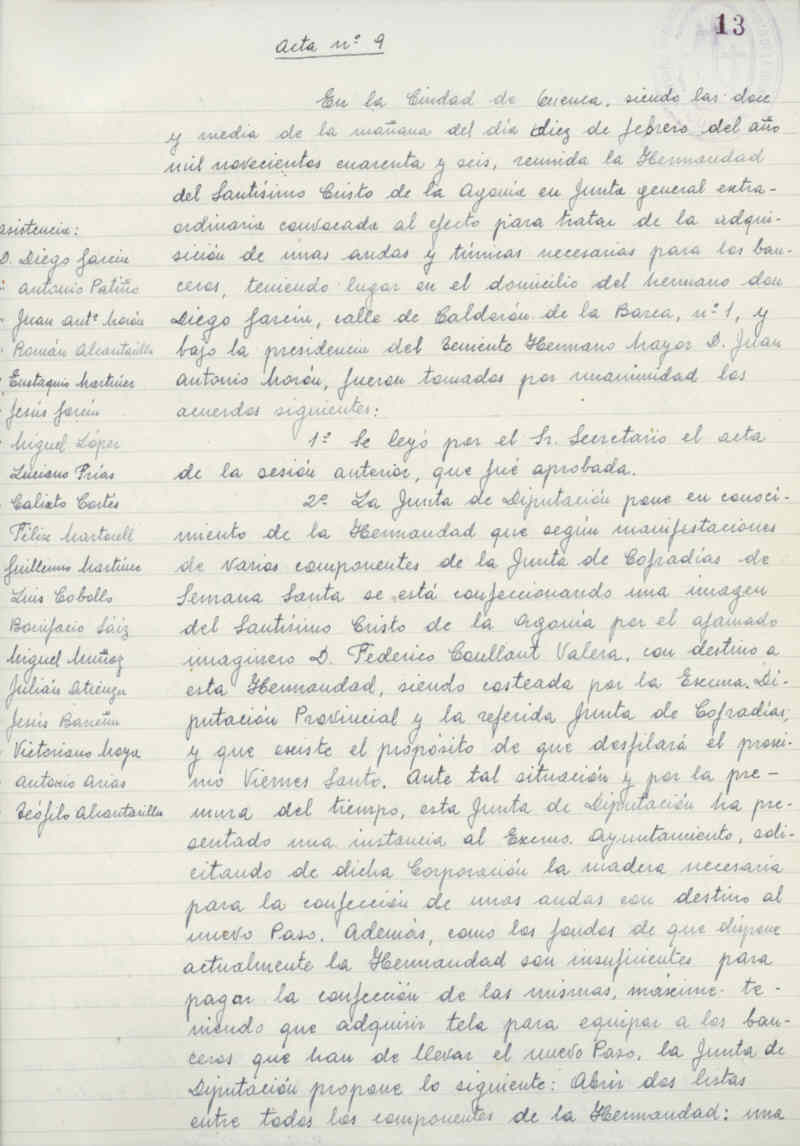 13
Acta nº 9
En la Ciudad de Cuenca, siendo las doce
y media de la mañana del día diez de febrero del año
mil novecientos cuarenta y seis, reunida la Hermandad
del Santísimo Cristo de la Agonía en Junta general extra-
ordinaria convocada al efecto para tratar de la adqui-
sición de unas andas y túnicas necesarias para los ban-
ceros, teniendo lugar en el domicilio del hermano don
Diego García, calle de Calderón de la Barca, nº 1, y
bajo la presidencia del Teniente Hermano Mayor D. Juan
Antonio Morón, fueron tomados por unanimidad los
acuerdos siguientes:
1º Se leyó por el Sr. Secretario el acta
de la sesión anterior, que fué aprobada.
2º La Junta de Diputación pone en conoci-
miento de la Hermandad que según manifestaciones
de varios componentes de la Junta de Cofradías de
Semana Santa se está confeccionando una imagen
del Santísimo Cristo de la Agonía por el afamado
imaginero D. Federico Coullaut Valera, con destino a
esta Hermandad, siendo costeada por la Excma. Di-
putación Provincial y la referida Junta de Cofradías,
y que existe el propósito de que desfilará el próxi-
mo Viernes Santo. Ante tal situación y por la pre-
mura del tiempo, esta Junta de Diputación ha pre-
sentado una instancia al Excmo. Ayuntamiento, soli-
citando de dicha Corporación la madera necesaria
para la confección de unas andas con destino al
nuevo Paso. Además, como los fondos de que dispone
actualmente la Hermandad son insuficientes para
pagar la confección de las mismas, máxime te-
niendo que adquirir tela para equipar a los ban-
ceros que han de llevar el nuevo Paso, la Junta de
Diputación propone lo siguiente: Abrir dos listas
entre todos los componentes de la Hermandad: una
asistencia:
D. Diego García
" Antonio Patiño
" Juan Antº Morón
" Román Alcantarilla
" Eustaquio Martínez
" Jesús García
" Miguel López
Luciano Frías
" Calixto Cortés
Félix Martorell
Guillermo Martínez
" Luis Cobollo
Bonifacio Sáiz
" Miguel Muñoz
" Julián Atienza
" Jesús Barreña
" Victoriano Moya
" Antonio Arias
" Teófilo Alcantarilla